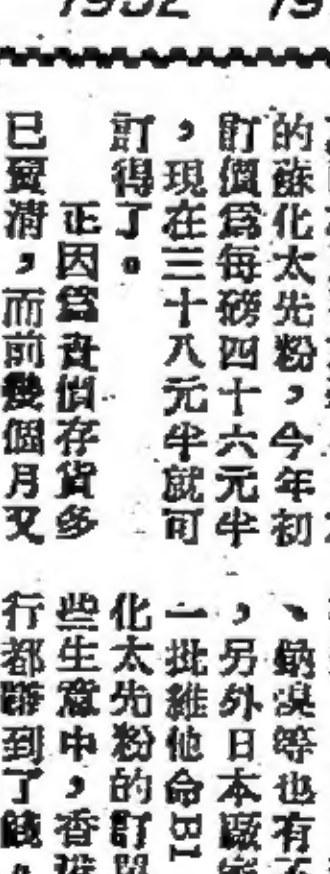 1952 19
的蘇化太先粉，今年初
訂價爲每磅四十六元半
，現在三十八元半就可
訂得了。
正因爲貴價存貨多
已賣清，而前幾個月又
、鈉溴等也有
，另外日本廠
一批維他命B1
化太先粉的訂
些生意中，香
行都賺到了錢。